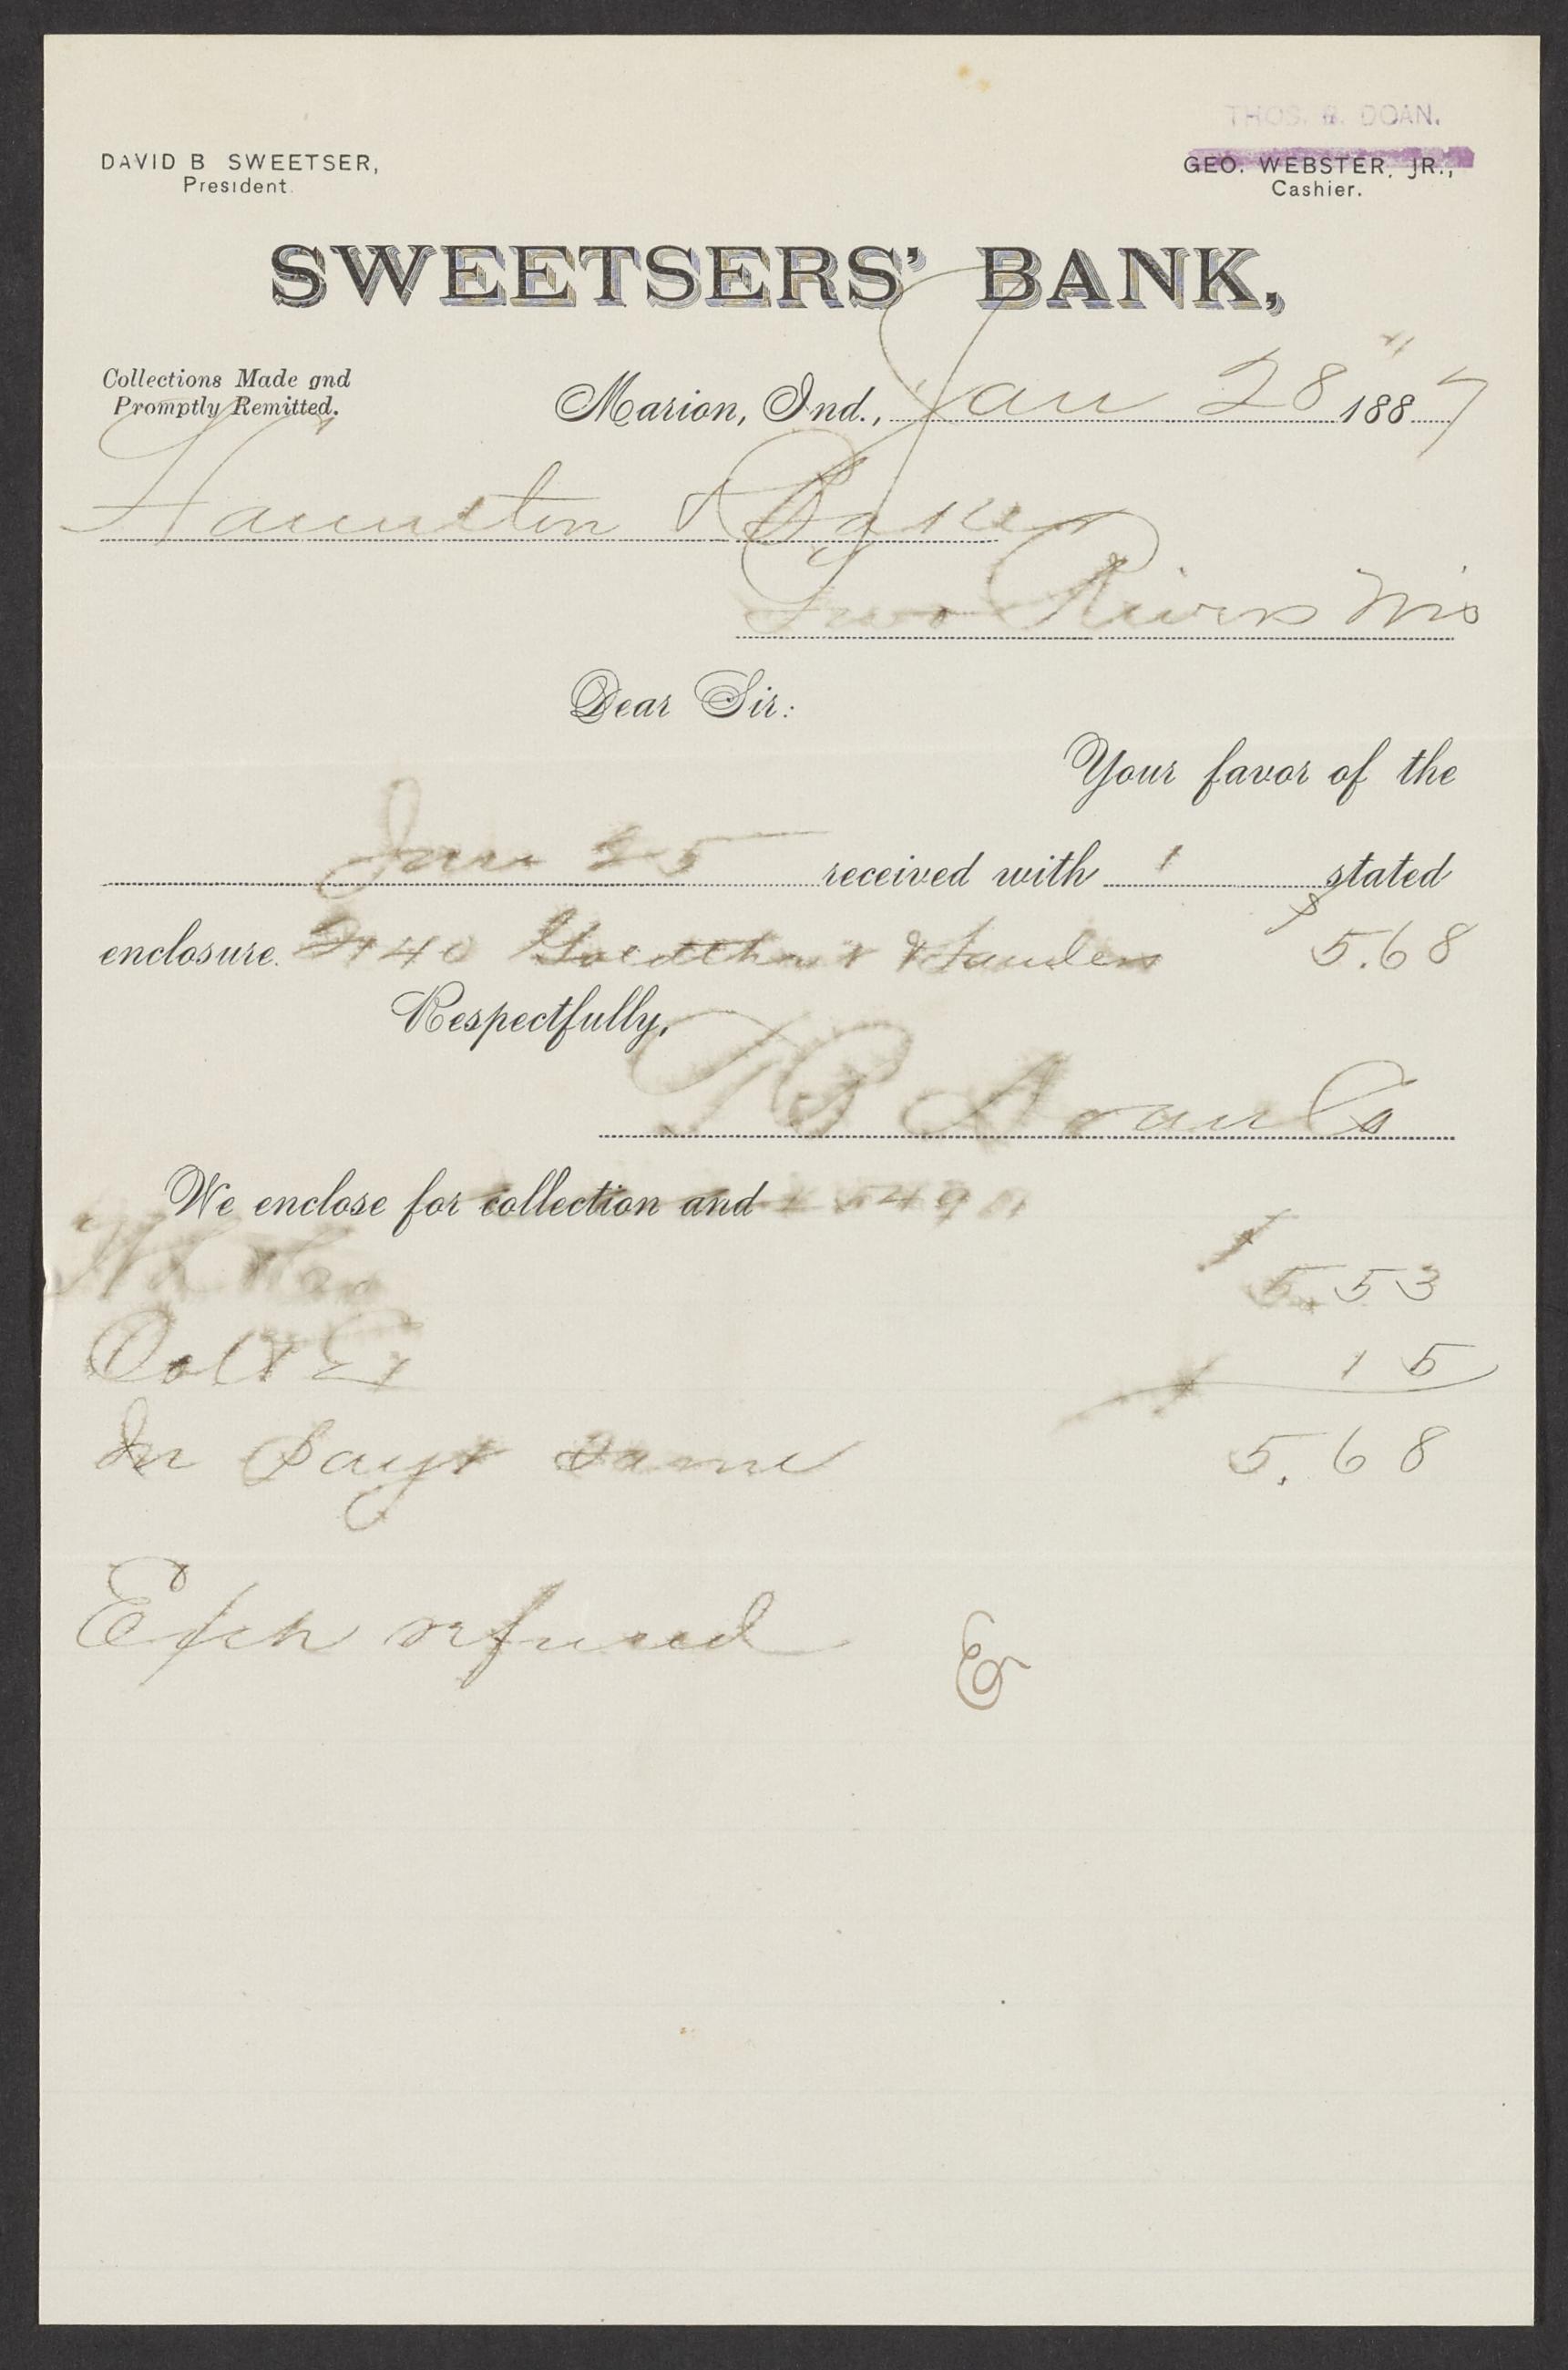 THOS. B. DOAN.
DAVID B SWEETSER,
President.
GEO. WEBSTER, JR.,
Cashier.
SWEETSERS' BANK,
Collections Made and
Promptly Remitted.
Marion, Ind., Jan 28" 1887
Hamilton & Baker
Two Rivers Wis
Dear Sir:
Your favor of the
Jan 25 received with 1 stated
enclosure. & $5.68
Respectfully,
T B Doan Cs
We enclose for collection and
5.53
Col & Ex 15
In Payt same 5.68
Exch refused